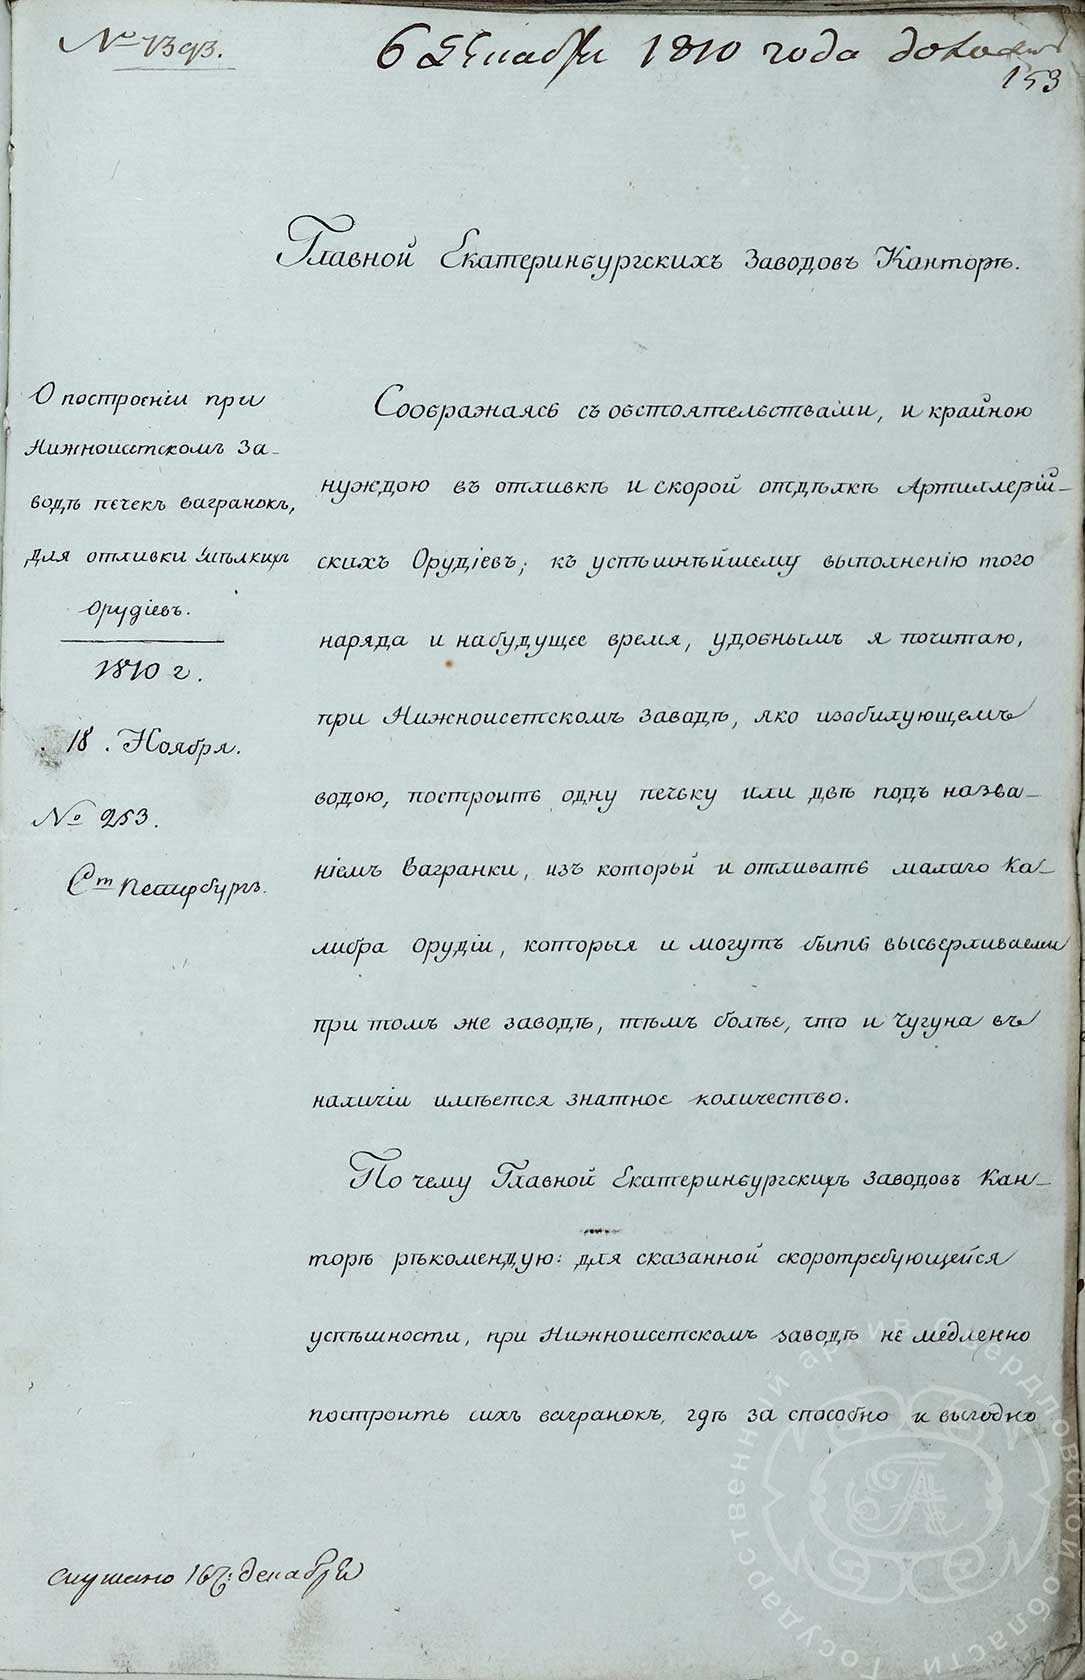 № 1393.
6 Декабря 1810 года
153
Главной Екатеринбургскихъ Заводовъ Канторѣ.
О построєніи при
Нижноисетскомъ За-
водѣ печекъ вагранокъ,
для отливки мѣлкихъ
орудіевъ.
1810 г.
18. Ноября.
№ 253.
Ст Петирбургъ.
Соображаясь съ обстоятельствами, и крайною
нуждою въ отливкѣ и скорой отдѣлкѣ Артиллерій-
скихъ Орудіевъ; къ успѣшнѣйшему выполненію того
наряда и набудущее время, удобнымъ я почитаю,
при Нижноисетскомъ заводѣ, яко изобилующемъ
водою, построить одну печьку или двѣ подъ назва-
ніемъ Вагранки, изъ который и отливать малаго ка-
либра орудіи, которыя и могутъ быть высверливаеми
при томъ же заводѣ, тѣмъ болѣе, что и чугуна въ
наличіи имѣется знатное количество.
По чему Главной Екатеринбургскихъ заводовъ Кан-
торѣ рѣкомендую: для сказанной скоротребующейся
успѣшности, при Нижноисетскомъ заводѣ не медленно
построить сихъ вагранокъ, гдѣ за способно и выгодно
слушано 16 декабря
Государственный архив Свердловской области
ГА